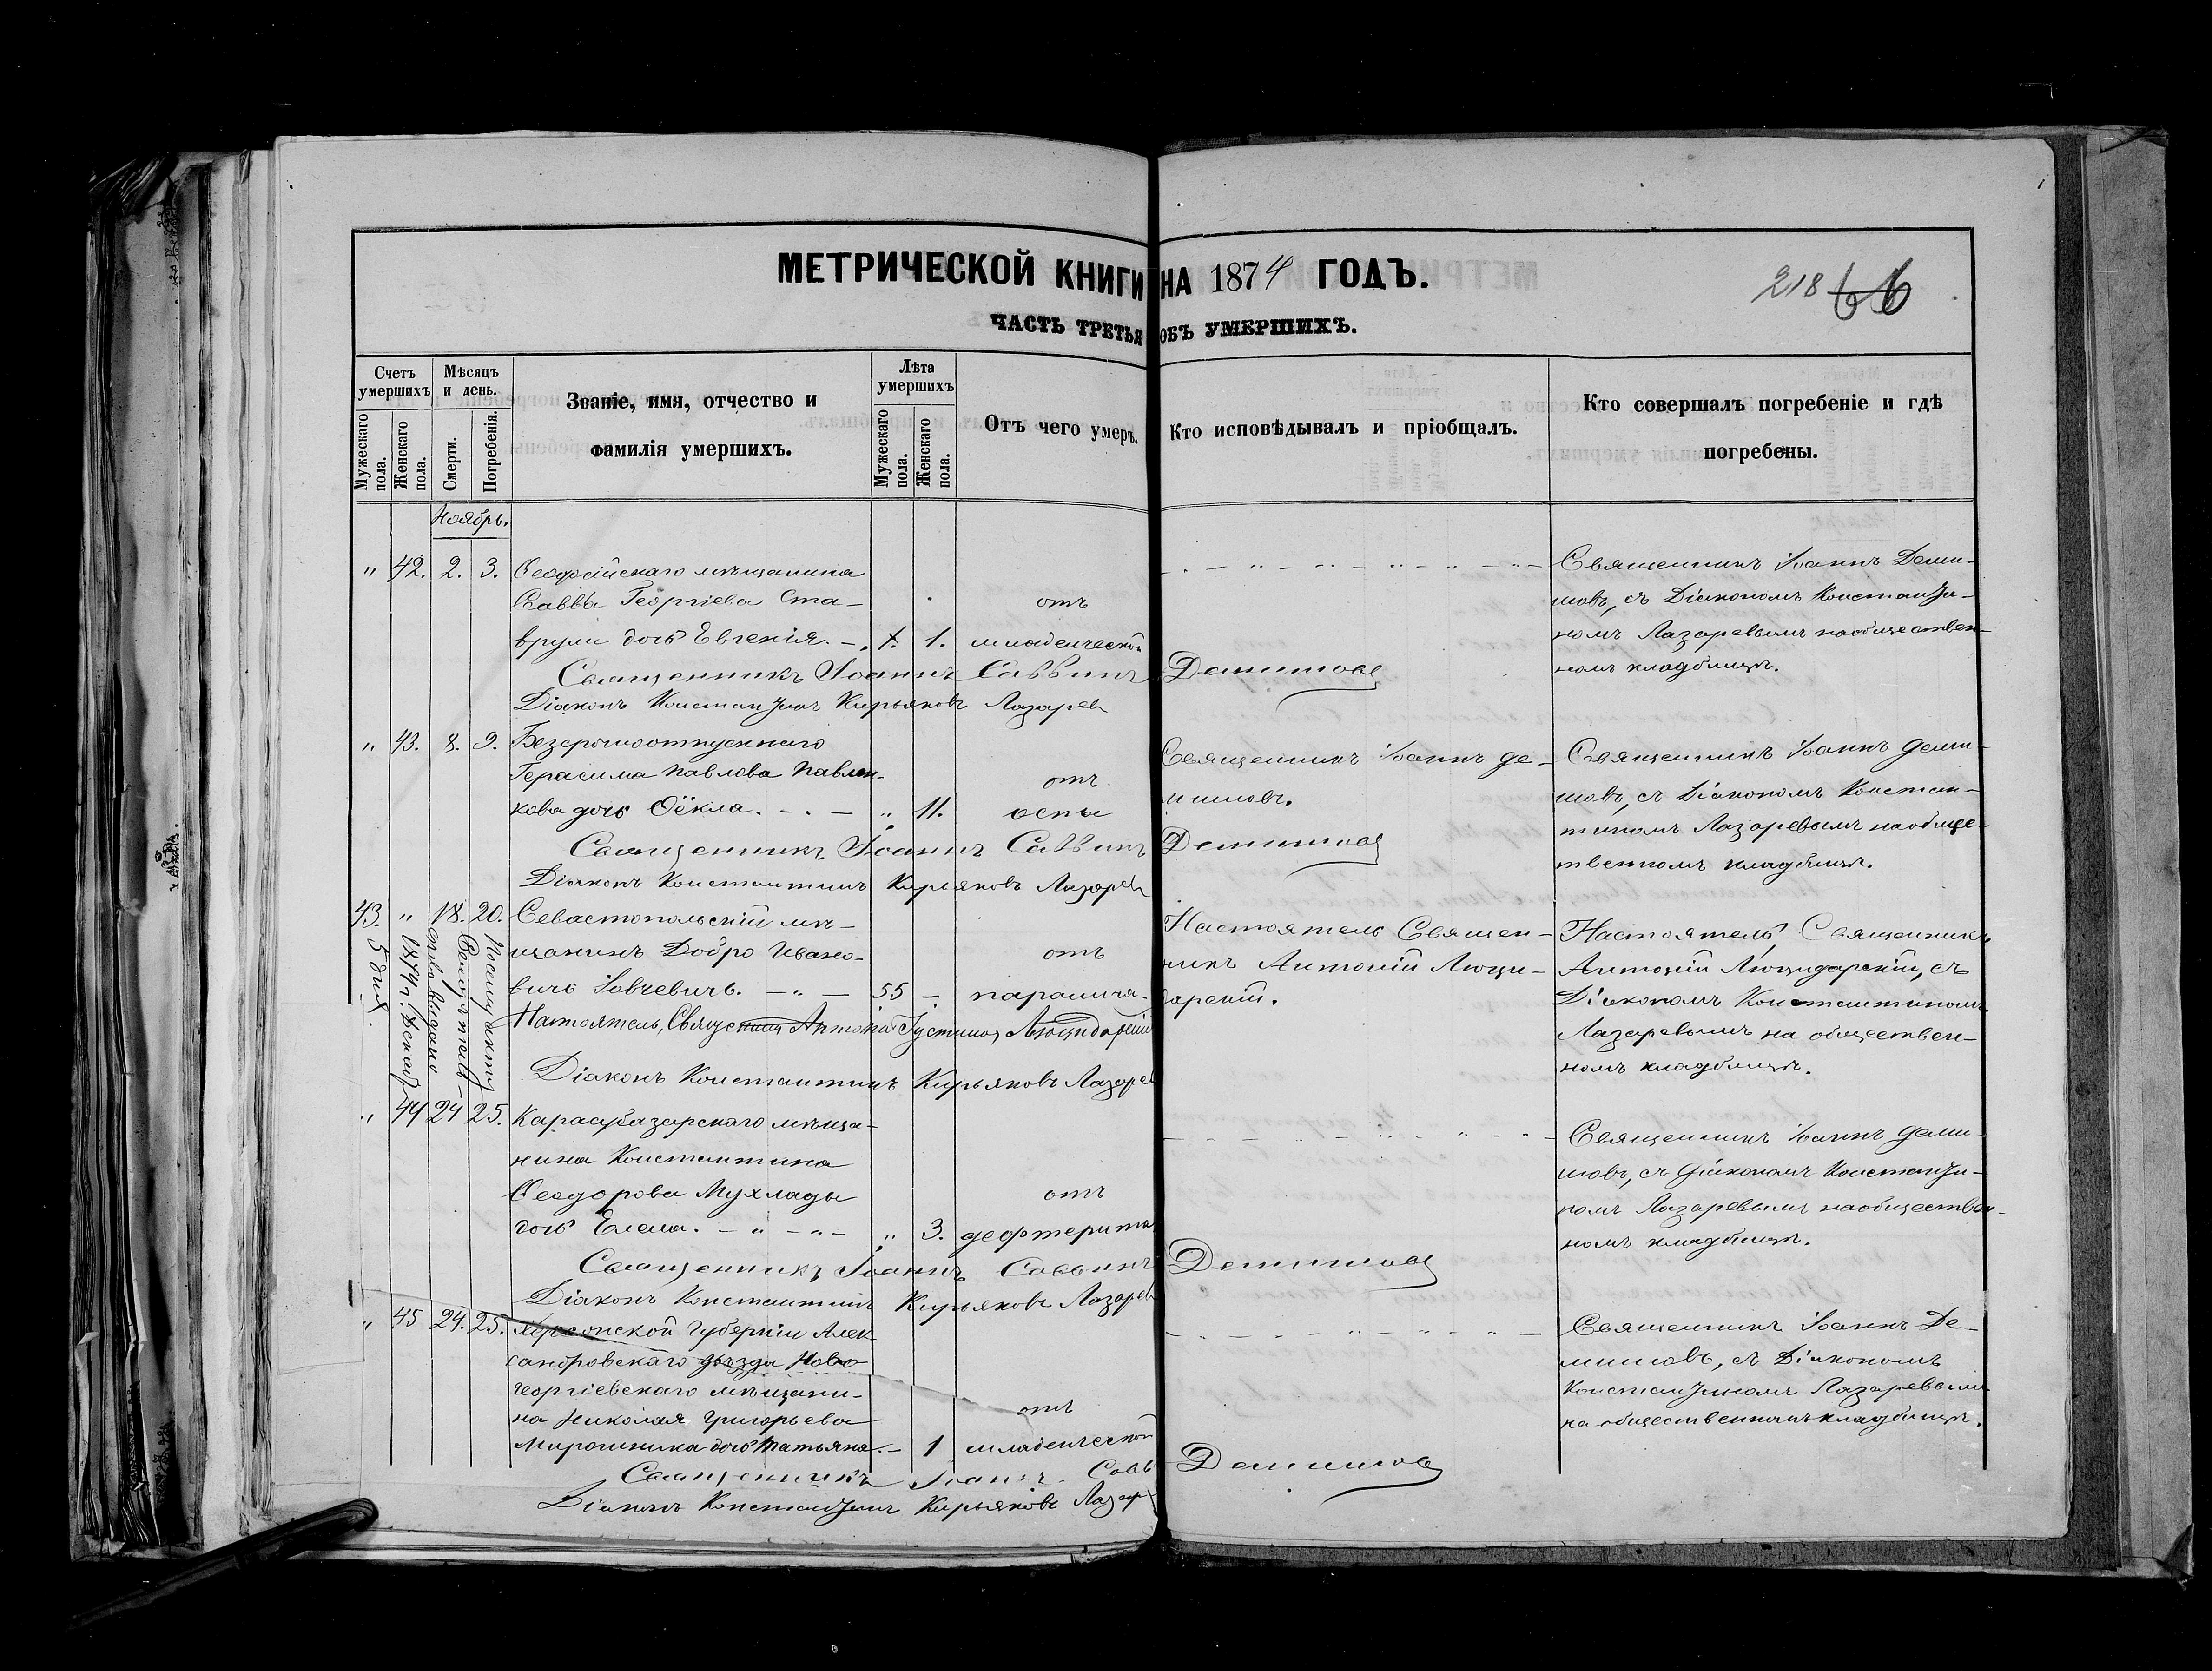 МЕТРИЧЕСКОЙ КНИГИ НА 1874 ГОДЪ.
218 66
ЧАСТЬ ТРЕТЬЯ ОБЪ УМЕРШИХЪ.
Счетъ умершихъ
Мужескаго пола.
Женскаго пола.
Мѣсяцъ и день.
Смерти.
Погребенія.
Званіе, имя, отчество и
фамилія умершихъ.
Лѣта умершихъ
Мужескаго пола.
Женскаго пола.
Отъ чего умеръ.
Кто исповѣдывалъ и пріобщалъ.
Кто совершалъ погребеніе и гдѣ
погребены.
Ноябрь.
" 42. 2. 3. Ѳеодосійскаго мѣщанина
Саввы Георгіева Ста-
врули дочь Евгенія. 1.
отъ
младенческой
Священникъ Іоаннъ Деми-
шовъ, съ Діакономъ Константи-
номъ Лазаревымъ на обществен-
номъ кладбищѣ.
Священникъ Іоаннъ Саввинъ Демишовъ
Діаконъ Константинъ Кирьяковъ Лазарев
" 43. 8. 9. Безсрочноотпускнаго
Герасима Павлова Павлен-
кова дочь Ѳёкла. " 11.
отъ
оспы
Священникъ Іоаннъ Де-
мишовъ.
Священникъ Іоаннъ Деми-
шовъ, съ Діакономъ Констан-
тиномъ Лазаревымъ на обще-
твенномъ кладбищѣ.
Священникъ Іоаннъ Саввинъ Демишовъ
Діаконъ Константинъ Кирьяковъ Лазарев
43. " 18. 20. Севастопольскій мѣ-
щанинъ Добро Ивано-
вичъ Іовчевичъ. 55 -
отъ
паралича.
Настоятель Священ-
никъ Антоній Люци-
дарскій.
Настоятель, Священникъ
Антоній Люцидарскій, съ
Діакономъ Константиномъ
Лазаревымъ на обществен-
номъ кладбищѣ.
Настоятель, Священникъ Антоній Густиновъ Люцидарскій
Діаконъ Константинъ Кирьяковъ Лазарев
1874 г. Декаб.
5 дня.
" 44 24 25. Карасубазарскаго мѣща-
нина Константина
Ѳеодорова Мухлады
дочь Елена. " 3.
отъ
дефтерита
Священникъ Іоаннъ Деми-
шовъ, съ Діакономъ Константи-
номъ Лазаревымъ на обществен-
номъ кладбищѣ.
Священникъ Іоаннъ Саввинъ Демишовъ
Діаконъ Константинъ Кирьяковъ Лазарев
" 45 24. 25. Херсонской Губерніи Алек-
сандровскаго уѣзда Ново-
георгіевскаго мѣщани-
на Николая Григорьева
Мирошника дочь Татьяна. 1
отъ
младенческой
Священникъ Іоаннъ Де-
мишовъ, съ Діакономъ
Константиномъ Лазаревымъ
на общественномъ кладбищѣ.
Священникъ Іоаннъ Савв Демишовъ
Діаконъ Константинъ Кирьяковъ Лазар